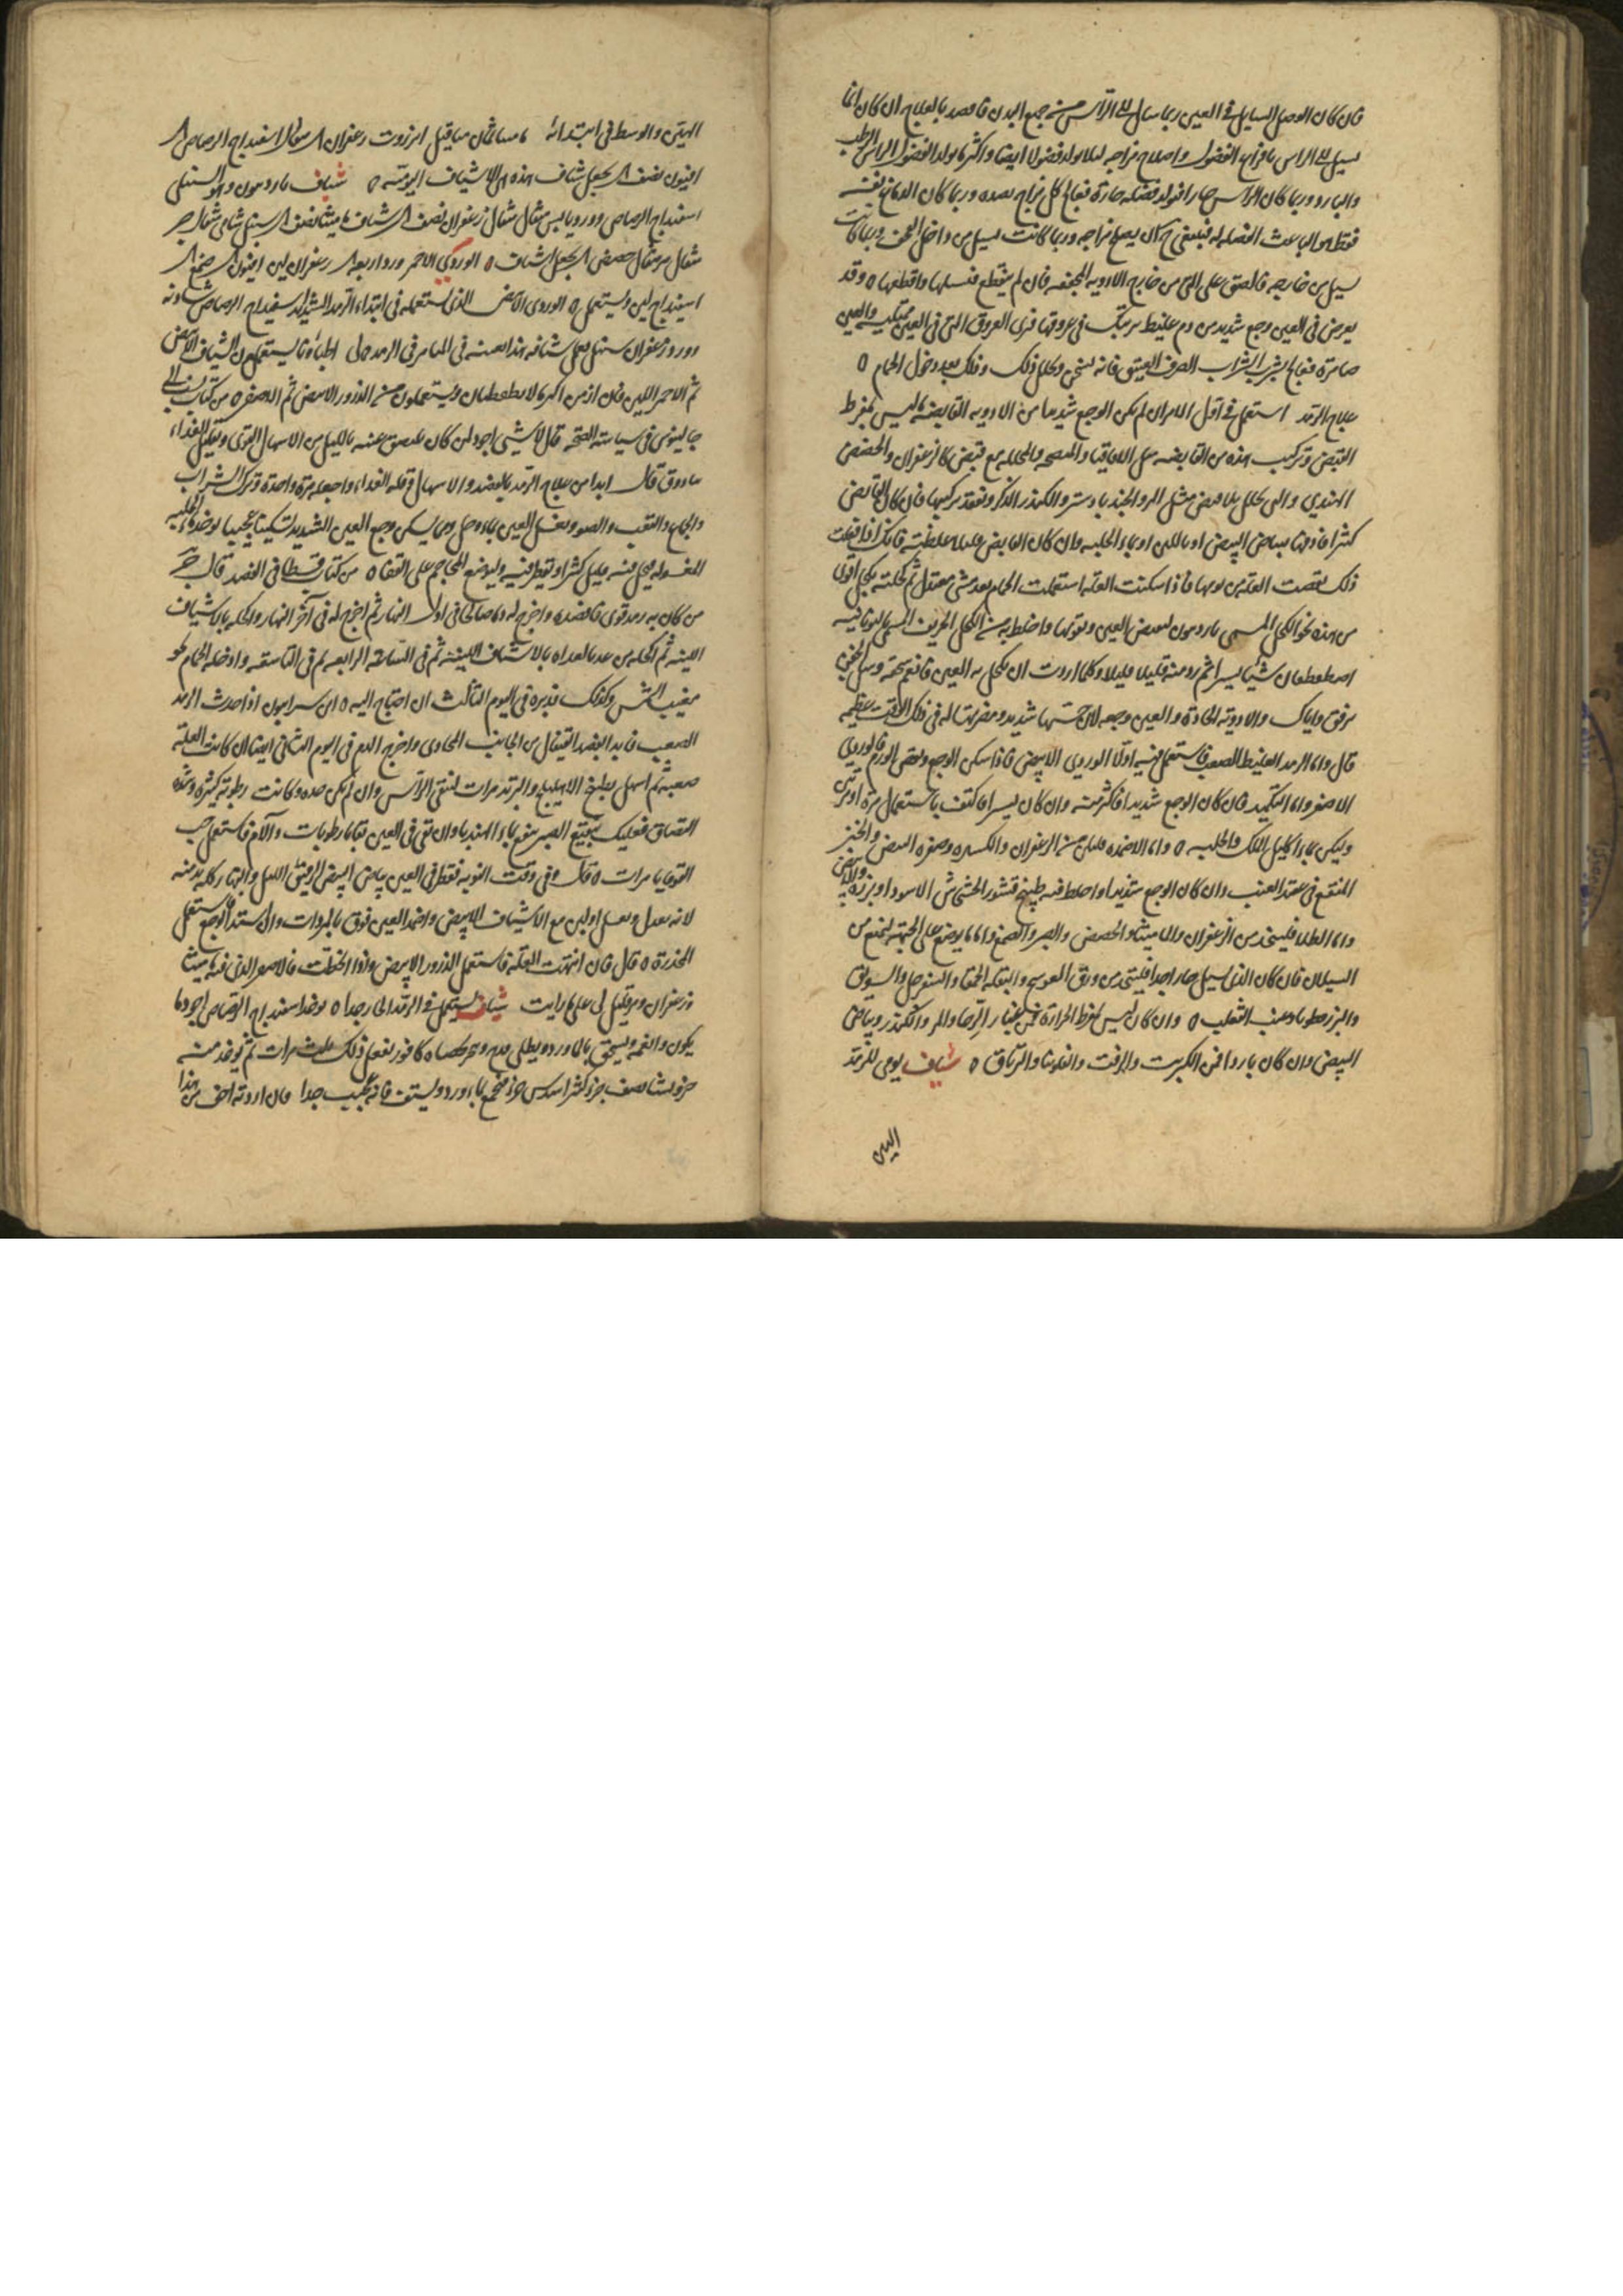 فان كان الوصل السايل في العين ربما سال الى الراس من جميع البدن فاقصد بالعلاج ان كان انما
يسيل الى الراس باخراج الفضول واصلاح مزاجه ليلا يولد فضولا ايضا واكثر ما يولد الفضول الراس الرطب
والبارد وربما كان الراس حارا فولد فضله حارة فعالج كل مزاج بضده وربما كان الدماغ نفسه
فقط هو الباعث الفضله له فينبغي ان يصلح مزاجه وربما كانت تسيل من داخل القحف وربما كانت
تسيل من خارجه فالصق على من خارج الادويه المجففه فان لم ينقطع فسلها واقطعها ٥ وقد
يعرض في العين وجع شديد من دم غليظ يرتبك في عروقها فترى العروق التي في العين ممتليه والعين
ضامرة فعالج بشرب الشراب الصرف العتيق فانه يسخن ويحلل ذلك وذلك بعد دخول الحمام ٥
علاج الرمد استعمل في اول الامر ان لم يكن الوجع شديدا من الادويه القابضه ما ليس بمفرط
القبض وتركيب هذه من القابضه مثل الاقاقيا والمنضجه والمحلله مع قبض كالزعفران والحضض
الهندي والتي تحلل بلا قبض مثل المر والجندبادستر والكندر الذكر وتفقد تركيبها فان كان القابض
كثيرا فادفها ببياض البيض او باللبن او بماء الحلبه وان كان القابض قليلا غلظته فانك اذا فعلت
ذلك نقصت العلة من يومها فاذا سكنت العله استعملت الحمام بعد مشي معتدل ثم كحلته بكحل اقوى
من هذه نحو الكحل المسمى ناردينون ليقبض العين ويقويها واخلط به من الكحل الحريف المسمى باليونانيه
اصطفطيقان شيئا يسيرا ثم زد منه قليلا قليلا وكلما اردت ان تكحل به العين فانعم سحقه وشل الجفن
برفق واياك والادويه الحادة والعين وجعه لان خشنها شديد ومضرتها له في ذلك الوقت عظيمه
قال واما الرمد الغليظ الصعب فاستعمل فيه اولا الوردي الابيض فاذا سكن الوجع ونقص الورم فالوردي
الاصفر واما التكميد فان كان الوجع شديدا فاكثر منه وان كان يسيرا فاكتف باستعمال مرة او مرتين
وليكن بماء اكليل الملك والحلبه ٥ واما الاضمده فلتكن من الزعفران والكسبره وصفره البيض والخبز
المنقع في عقيد العنب وان كان الوجع شديدا واخلط فيه طبيخ قشور الخشخاش الاسود او بزره
واما الطلا فليتخذ من الزعفران والماميثا والحضض والصبر والصمغ واما ما يوضع على الجبهه ليمنع من
السيلان فان كان الذي يسيل حارا جدا فليتخذ من ورق العوسج والبقله الحمقا والسفرجل والسويق
والبزرقطونا وعنب الثعلب ٥ وان كان ليس بمفرط الحرارة فمن غبار الرحا والمر والكندر وبياض
البيض وان كان باردا فمن الكبريت والزفت والفلونيا والترياق ٥ شياف يومي للرمد
الهين
الهين والوسط في ابتدائه ماميثا ثمان مثاقيل انزروت زعفران مثقال اسفيداج الرصاص
افيون نصف يجعل شياف هذه هي الاشياف اليوميه ٥ شياف ناردينون وهو السنبلي
اسفيداج الرصاص وورد يابس مثقال مثقال زعفران نصف شياف ماميثا نصف سنبل شامي مثقال
مثقال حضض يجعل شياف ٥ الوردي الاحمر ورد اربعه زعفران افيون صمغ
اسفيداج لين ويستعمل ٥ الوردي الابيض الذي استعمله في ابتداء الرمد الشديد اسفيداج الرصاص شاذنه
ورد زعفران سنبل يعمل شيافه هذا في الميامر في الرمد اطباونا يستعملون الشياف الابيض
ثم الاحمر اللين فان ازمن الاصطفطيقان ويستعملون من الذرور الابيض ثم الاصفر ٥ من كتاب ينسب الى
جالينوس في سياسة الصحه قال لا شي اجود لمن كان يلصق عينه بالليل من الاسهال القوي وتقليل الغذاء
قال ابدا من علاج الرمد بالفصد والاسهال وقله الغذاء واجعله مرة واحدة وترك الشراب
والجماع والتعب والضوء وغسل العين بماء وخل ومما يسكن وجع العين الشديد تسكينا عجيبا يوخذ ماء الحلبه
المغسوله يحل فيه قليل كثيرا ويقطر فيه وليوضع المحاجم على القفا ٥ من كتاب قسطا في الفصد قال
من كان به رمد قوي فافصده واخرج له دما صالحا في اول النهار ثم اخرج له في آخر النهار واكحله بالاشياف
اللينه ثم اكحله من غد بالغداه بالاشياف اللينه ثم في الساعه الرابعه ثم في التاسعه وادخله الحمام نحو
مغيب الشمس وكذلك تدبره في اليوم الثالث ان احتاج اليه ٥ ابن سرابيون اذا حدث الرمد
الصعب فابدا بفصد القيفال من الجانب المحاذي واخرج الدم في اليوم الثاني ايضا ان كانت العله
صعبه ثم اسهل بطبيخ الاهليلج والتربد مرات لتنقي الراس وان لم يكن حده وكانت رطوبه كثيره وشده
التصاق فعليك بنقيع الصبر ينقع بماء الهندبا وان بقي في العين بقايا رطوبات وآلام فاستعمل حب
القوقايا مرات ٥ قال وفي وقت النوبه فقطر في العين بياض البيض الرقيق الليل والنهار كله يدمنه
لانه يعدل ويغسل او لبن مع الاشياف الابيض واضمد العين فوق بالمبردات وان اشتد الوجع فاستعمل
المخدرة ٥ قال فان انتهت العله فاستعمل الذرور الابيض واذا انحطت فالاصفر الذي فيه ماميثا
وزعفران ومر قليل لي على ما رايت شياف يستعمل في الرمد الحار جدا ٥ يوخذ اسفيداج الرصاص اجود ما
يكون وانعمه ويسحق بالماورد ويطلى قدح كافور يفعل ذلك ثلث مرات ثم يوخذ منه
جزو نشا نصف جزو كثيرا سدس جزو صمغ بماء ورد ويشيف فانه عجيب جدا فان اردته اخف من هذا